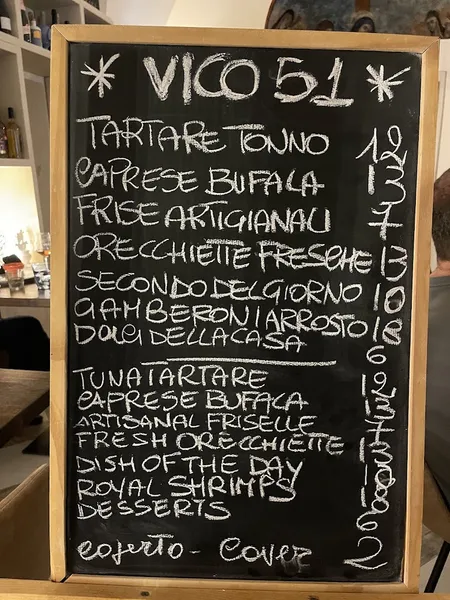 * VICO 51 *
TARTARE TONNO 12
CAPRESE BUFALA 13
FRISE ARTIGIANALI 7
ORECCHIETTE FRESCHE 13
SECONDO DEL GIORNO 10
GAMBERONI ARROSTO 18
DOLCI DELLA CASA 6
TUNA TARTARE 12
CAPRESE BUFALA 13
ARTISANAL FRISELLE 7
FRESH ORECCHIETTE 13
DISH OF THE DAY 10
ROYAL SHRIMPS 18
DESSERTS 6
coperto - cover 2